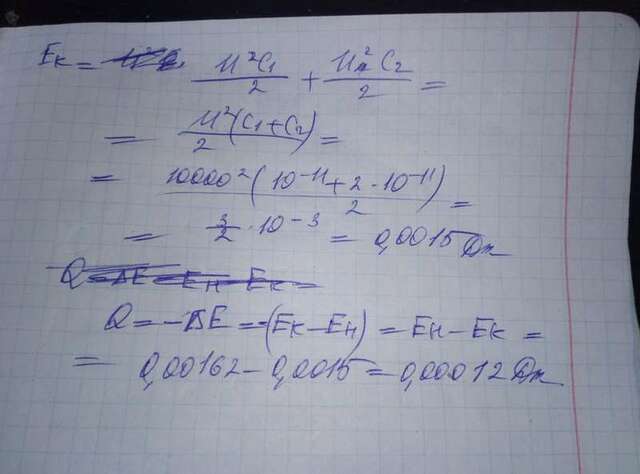 Eк = U²C₁/2 + U²C₂/2 =
= U²(C₁+C₂)/2 =
= 10000²(10⁻¹¹+2·10⁻¹¹)/2 =
= 3/2·10⁻³ = 0,0015 Дж
Q = ΔE = Eн - Eк =
Q = -ΔE = -(Eк-Eн) = Eн-Eк =
= 0,00162-0,0015=0,00012 Дж